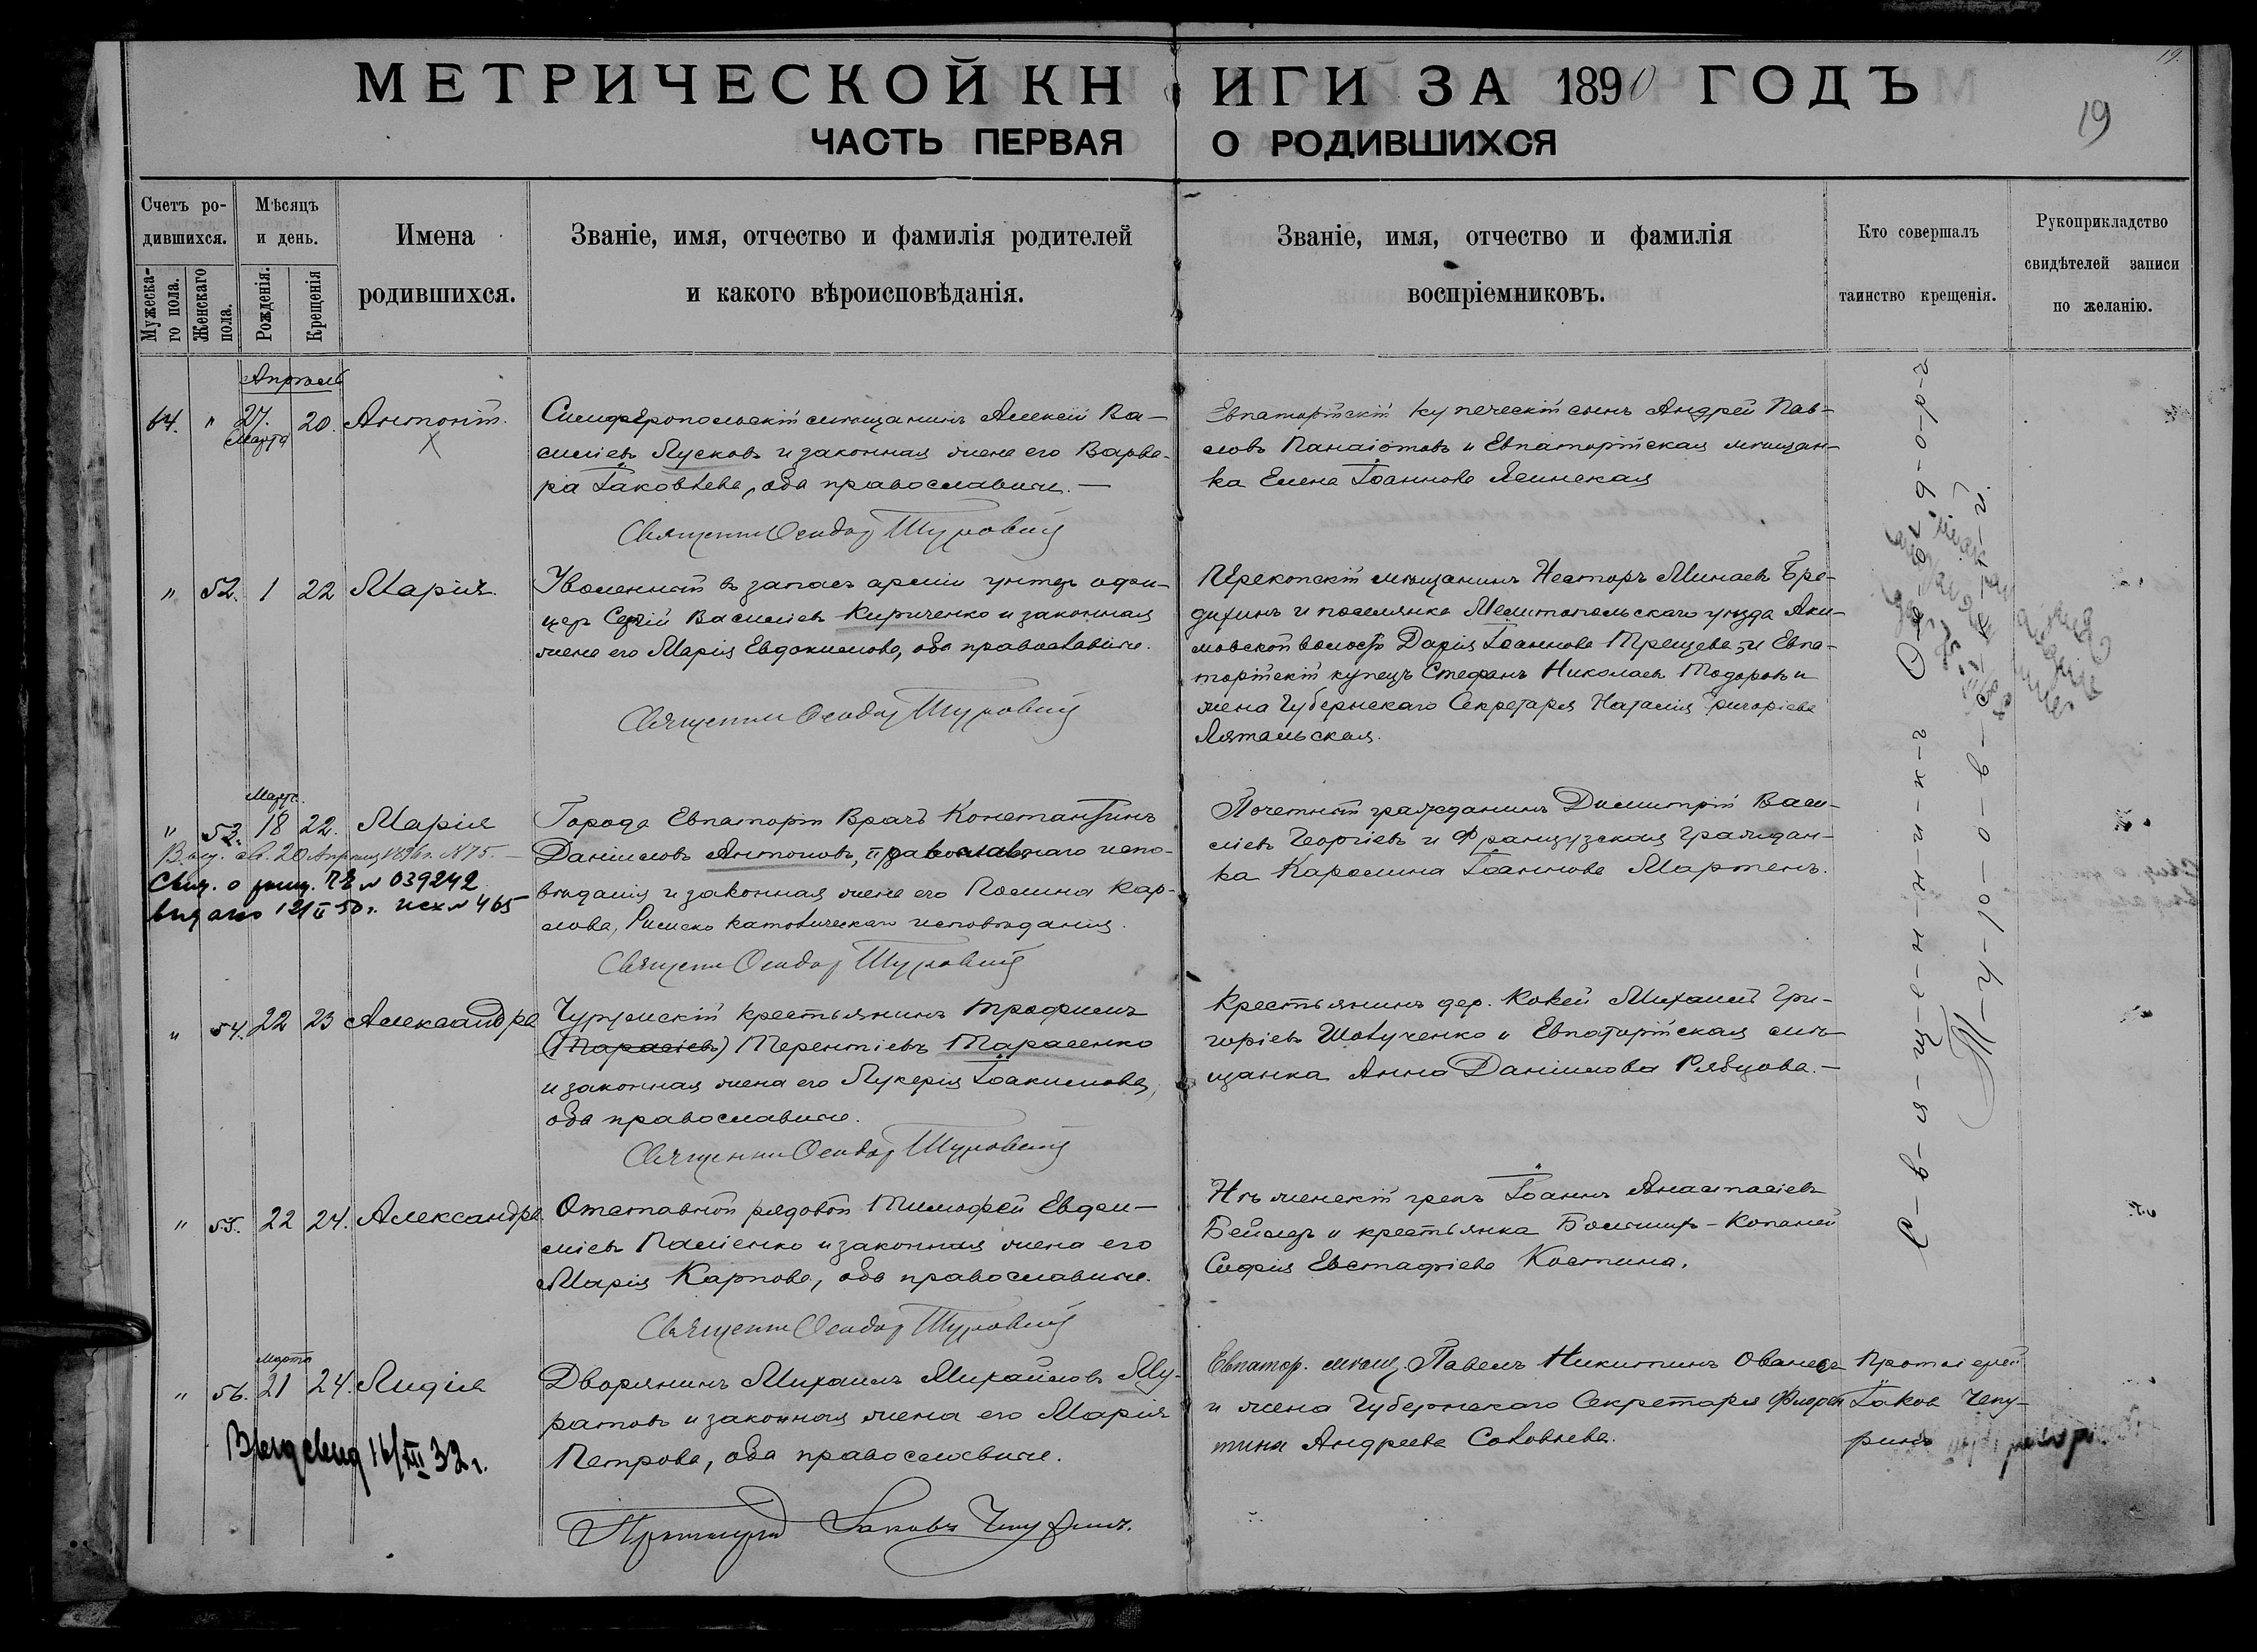 19.
МЕТРИЧЕСКОЙ КНИГИ ЗА 1890 ГОДЪ
19
ЧАСТЬ ПЕРВАЯ О РОДИВШИХСЯ
Счетъ родившихся.
Мужескаго пола.
Женскаго пола.
Мѣсяцъ и день.
Рожденія.
Крещенія
Имена родившихся.
Званіе, имя, отчество и фамилія родителей и какого вѣроисповѣданія.
Званіе, имя, отчество и фамилія воспріемниковъ.
Кто совершалъ таинство крещенія.
Рукоприкладство свидѣтелей записи по желанію.
Апрѣль
64. " 27. Марта 20. Антоній.
Симферопольскій мѣщанинъ Алексій Ва-
силіевъ Лусковъ и законная жена его Варва-
ра Іаковлева, оба православные. —
Священник Ѳеодор Туровский
Евпаторійскій купеческій сынъ Андрей Пав-
ловъ Панаіотовъ и Евпаторійская мѣщан-
ка Елена Іоаннова
" 52. 1 22 Марія.
Уволенный въ запасъ арміи унтеръ офи-
церъ Сергій Василіевъ Кириченко и законная
жена его Марія Евдокимова, оба православные.
Священник Ѳеодор Туровский
Перекопскій мѣщанинъ Несторъ Минаевъ Бре-
дихинъ и поселянка Мелитопольскаго уѣзда Аки-
мовской волости Дарія Іоаннова и Евпа-
торійскій купецъ Стефанъ Николаевъ Тодоровъ и
жена Губернскаго Секретаря Наталія Григоріева
Лятальская.
" 53. Март. 18 22. Марія
Выд. св. 20 Апрѣля 1896 г. № 75. —
Свид. о рожд. № 039242
выдано 12/II 50 г. исх № 465
Города Евпаторіи Врачъ Константинъ
Даніиловъ Антоновъ, православнаго испо-
вѣданія и законная жена его Полина Кар-
лова, Римско католическаго исповѣданія.
Священник Ѳеодор Туровский
Почетный гражданинъ Димитрій Васи-
ліевъ Георгіевъ и Французская граждан-
ка Каролина Іоаннова Мартенъ.
" 54. 22 23 Александра
крестьянинъ Трофимъ
(Тарасіевъ) Терентіевъ Тарасенко
и законная жена его Лукерія Іоакимова,
оба православные.
Священник Ѳеодор Туровский
Крестьянинъ дер. Кокей Михаилъ Гри-
горіевъ Шовученко и Евпаторійская мѣ-
щанка Анна Даніилова Рябцова. —
" 55. 22 24. Александра.
Отставной рядовой Тимофей
Паліенко и законная жена его
Марія Карпова, оба православные.
Священник Ѳеодор Туровский
Нѣженскій грекъ Іоаннъ Анастасіевъ
и крестьянка Большихъ-Копаней
Софія Евстафіева Костина.
С-в-я-щ-е-н-н-и-к-ъ Ѳ-е-о-д-о-р-ъ
Т-у-р-о-в-с-к-і-й.
" 56. Марта 21 24. Лидія
Выд свид 16/XII 32 г.
Дворянинъ Михаилъ Михайловъ Му-
ратовъ и законная жена его Марія
Петрова, оба православные.
Протоіерей Іаковъ Чепуринъ.
Евпатор. мѣщ. Павелъ Никитинъ
и жена Губернскаго Секретаря
Андреева Соловьева.
Протоіерей
Іаковъ Чепу-
ринъ